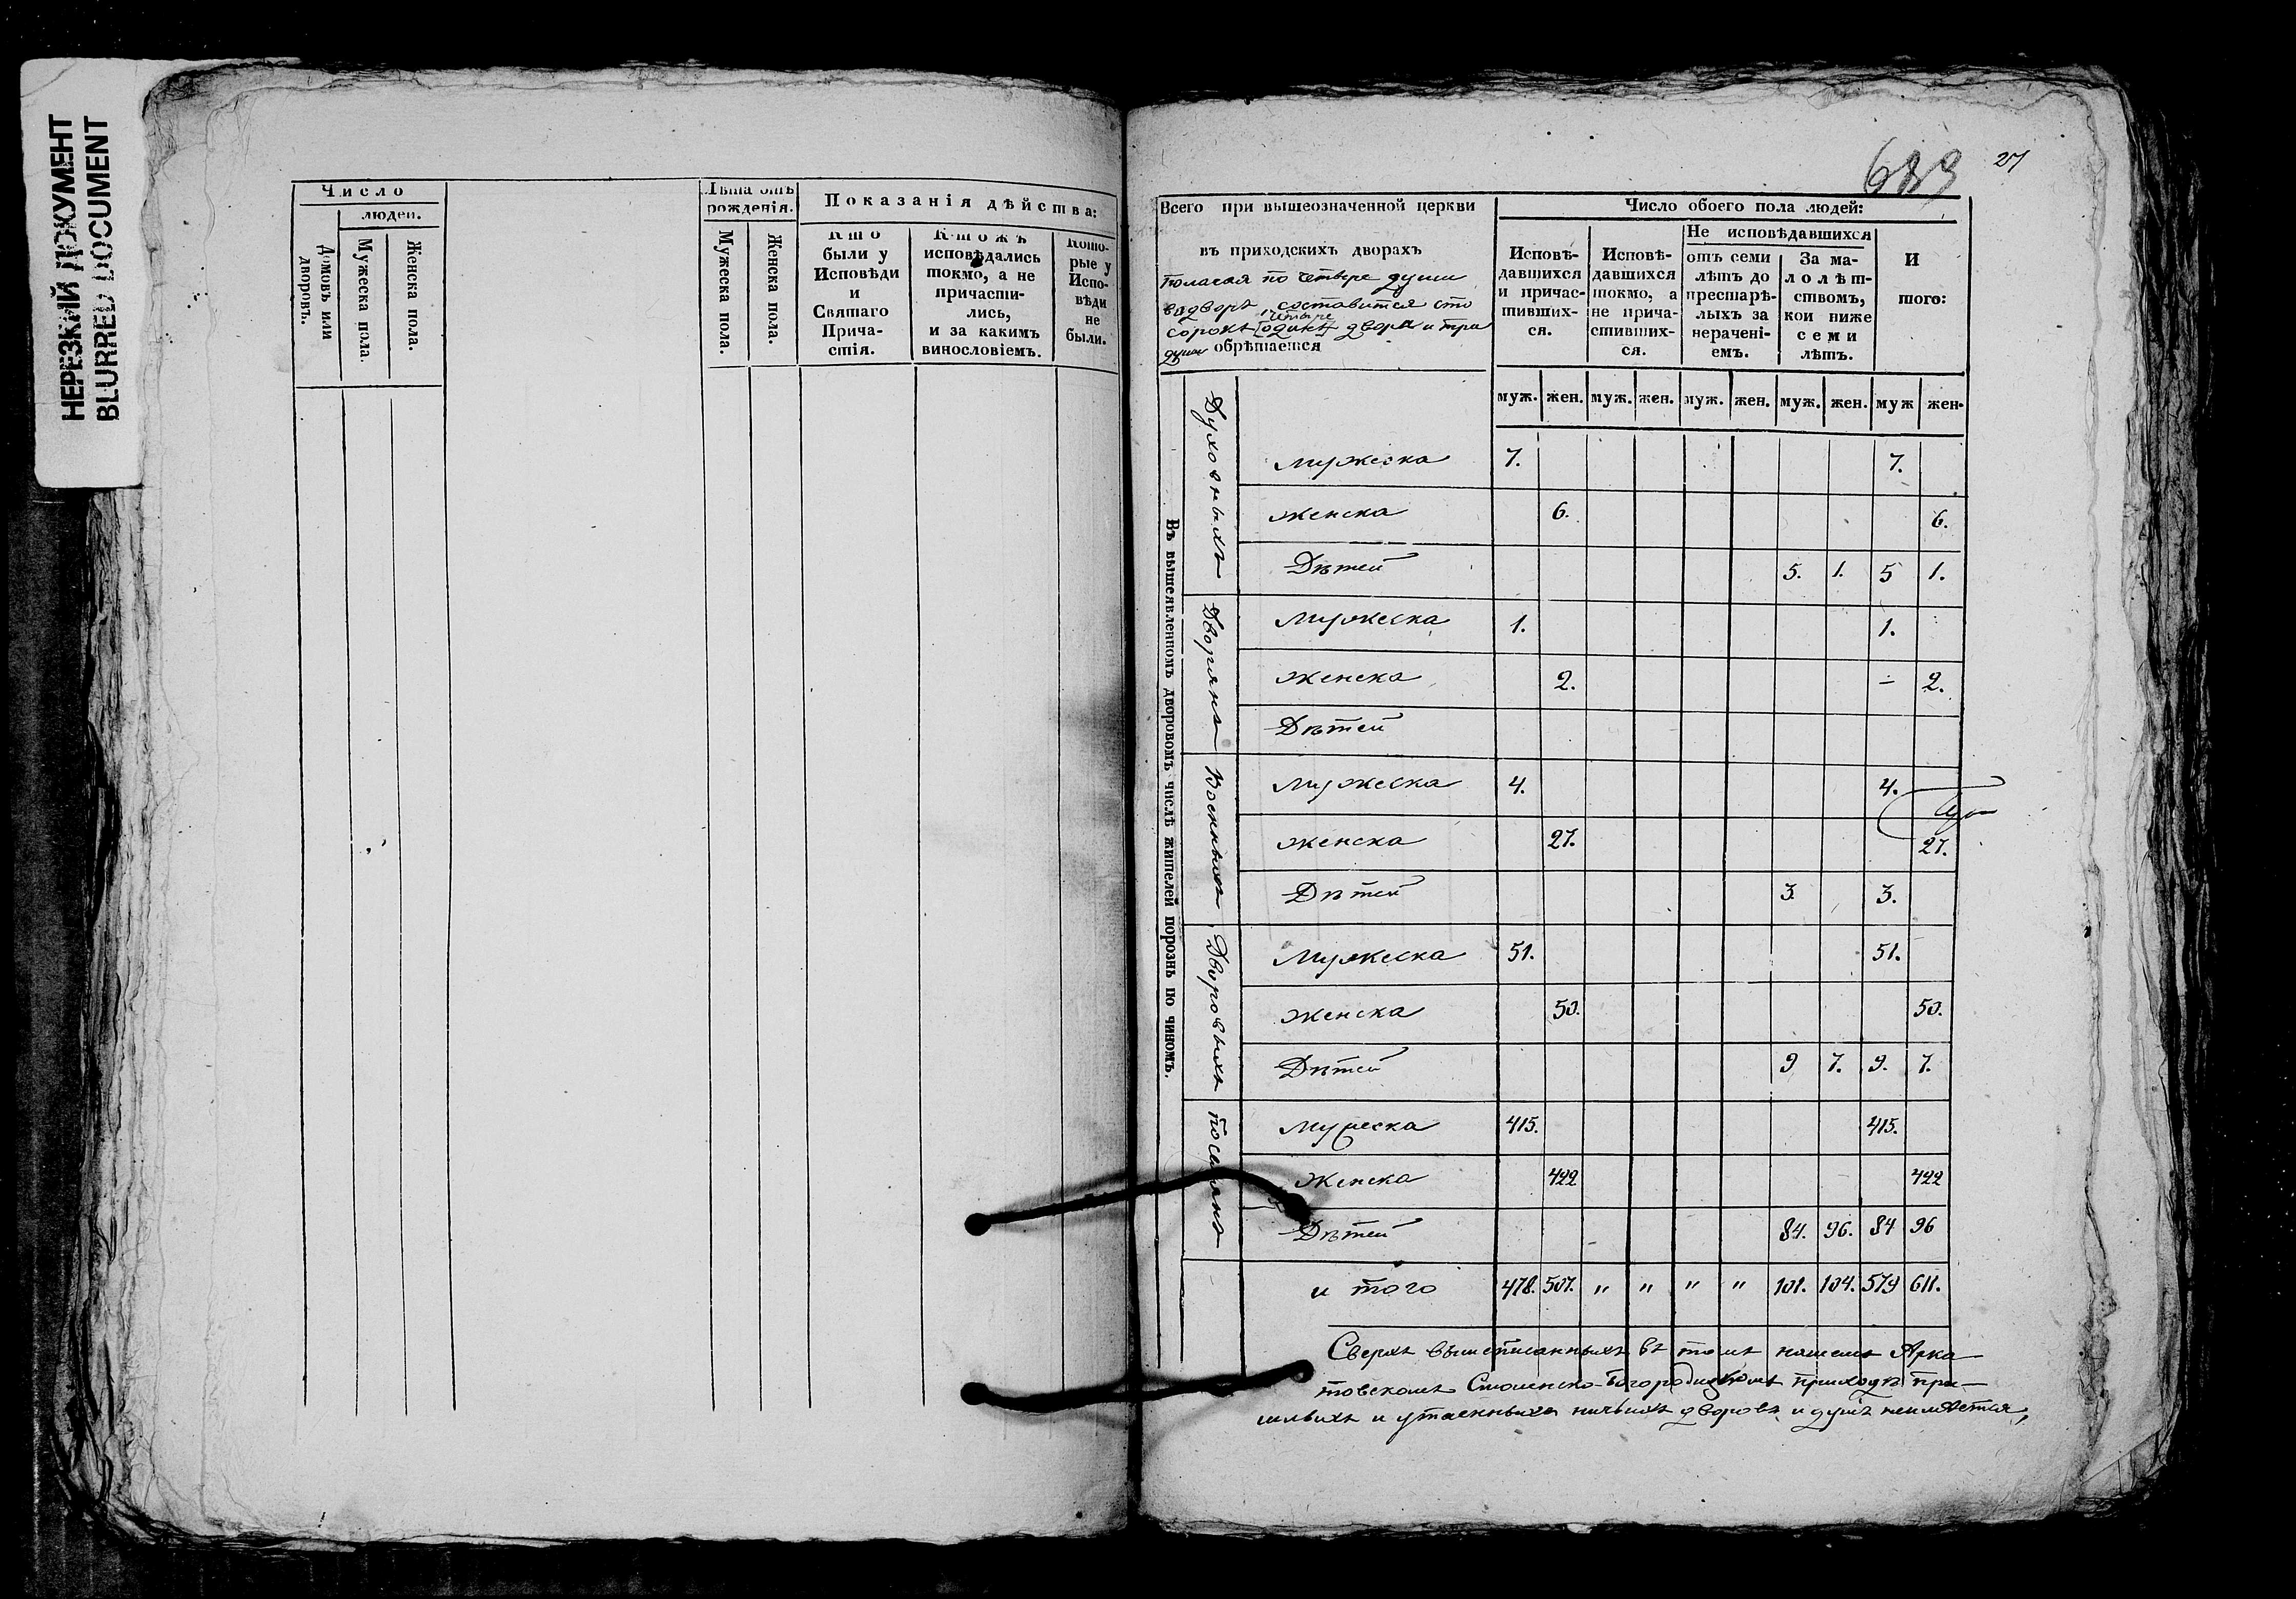 НЕРЕЗКИЙ ДОКУМЕНТ
BLURRED DOCUMENT
Число
людей.
Домовъ или дворовъ.
Мужеска пола.
Женска пола.
Лѣта отъ рожденія.
Мужеска пола.
Женска пола.
Показанія дѣйства:
Кто были у Исповѣди и Святаго Причастія.
Кто жъ исповѣдались токмо, а не причастились, и за какимъ винословіемъ.
Которые у Исповѣди не были.
27
Всего при вышеозначенной церкви
въ приходскихъ дворахъ
полагая по четыре души
во дворѣ, составится сто
четыре
сорокъ [одинъ] двора и три
души обрѣтается
Число обоего пола людей:
Исповѣдавшихся и причастившихся.
Исповѣдавшихся токмо, а не причастившихся.
Не исповѣдавшихся
отъ семи лѣтъ до престарѣлыхъ за нерачениемъ.
За малолѣтствомъ, кои ниже семи лѣтъ.
И того:
муж. жен. муж. жен. муж. жен. муж. жен. муж жен.
Въ вышеявленномъ дворовомъ числѣ жителей порознь по чиномъ.
Духовныхъ
Мужеска 7. 7.
Женска 6. 6.
Дѣтей 5. 1. 5 1.
Дворянъ
Мужеска 1. 1.
Женска 2. – 2.
Дѣтей
Военныхъ
Мужеска 4. 4.
Женска 27. 27.
Дѣтей 3. 3.
Дворовыхъ
Мужеска 51. 51.
Женска 50. 50.
Дѣтей 9 7. 9. 7.
Поселянъ
Мужеска 415. 415.
Женска 422 422
Дѣтей 84. 96. 84 96
и того 478. 507. " " " " 101. 104. 579 611.
Сверхъ вышеписанныхъ въ томъ нашемъ Арка
товскомъ Смоленско-Богородицкомъ приходѣ при-
шлыхъ и утаенныхъ ничьихъ дворовъ и душъ неимѣется,